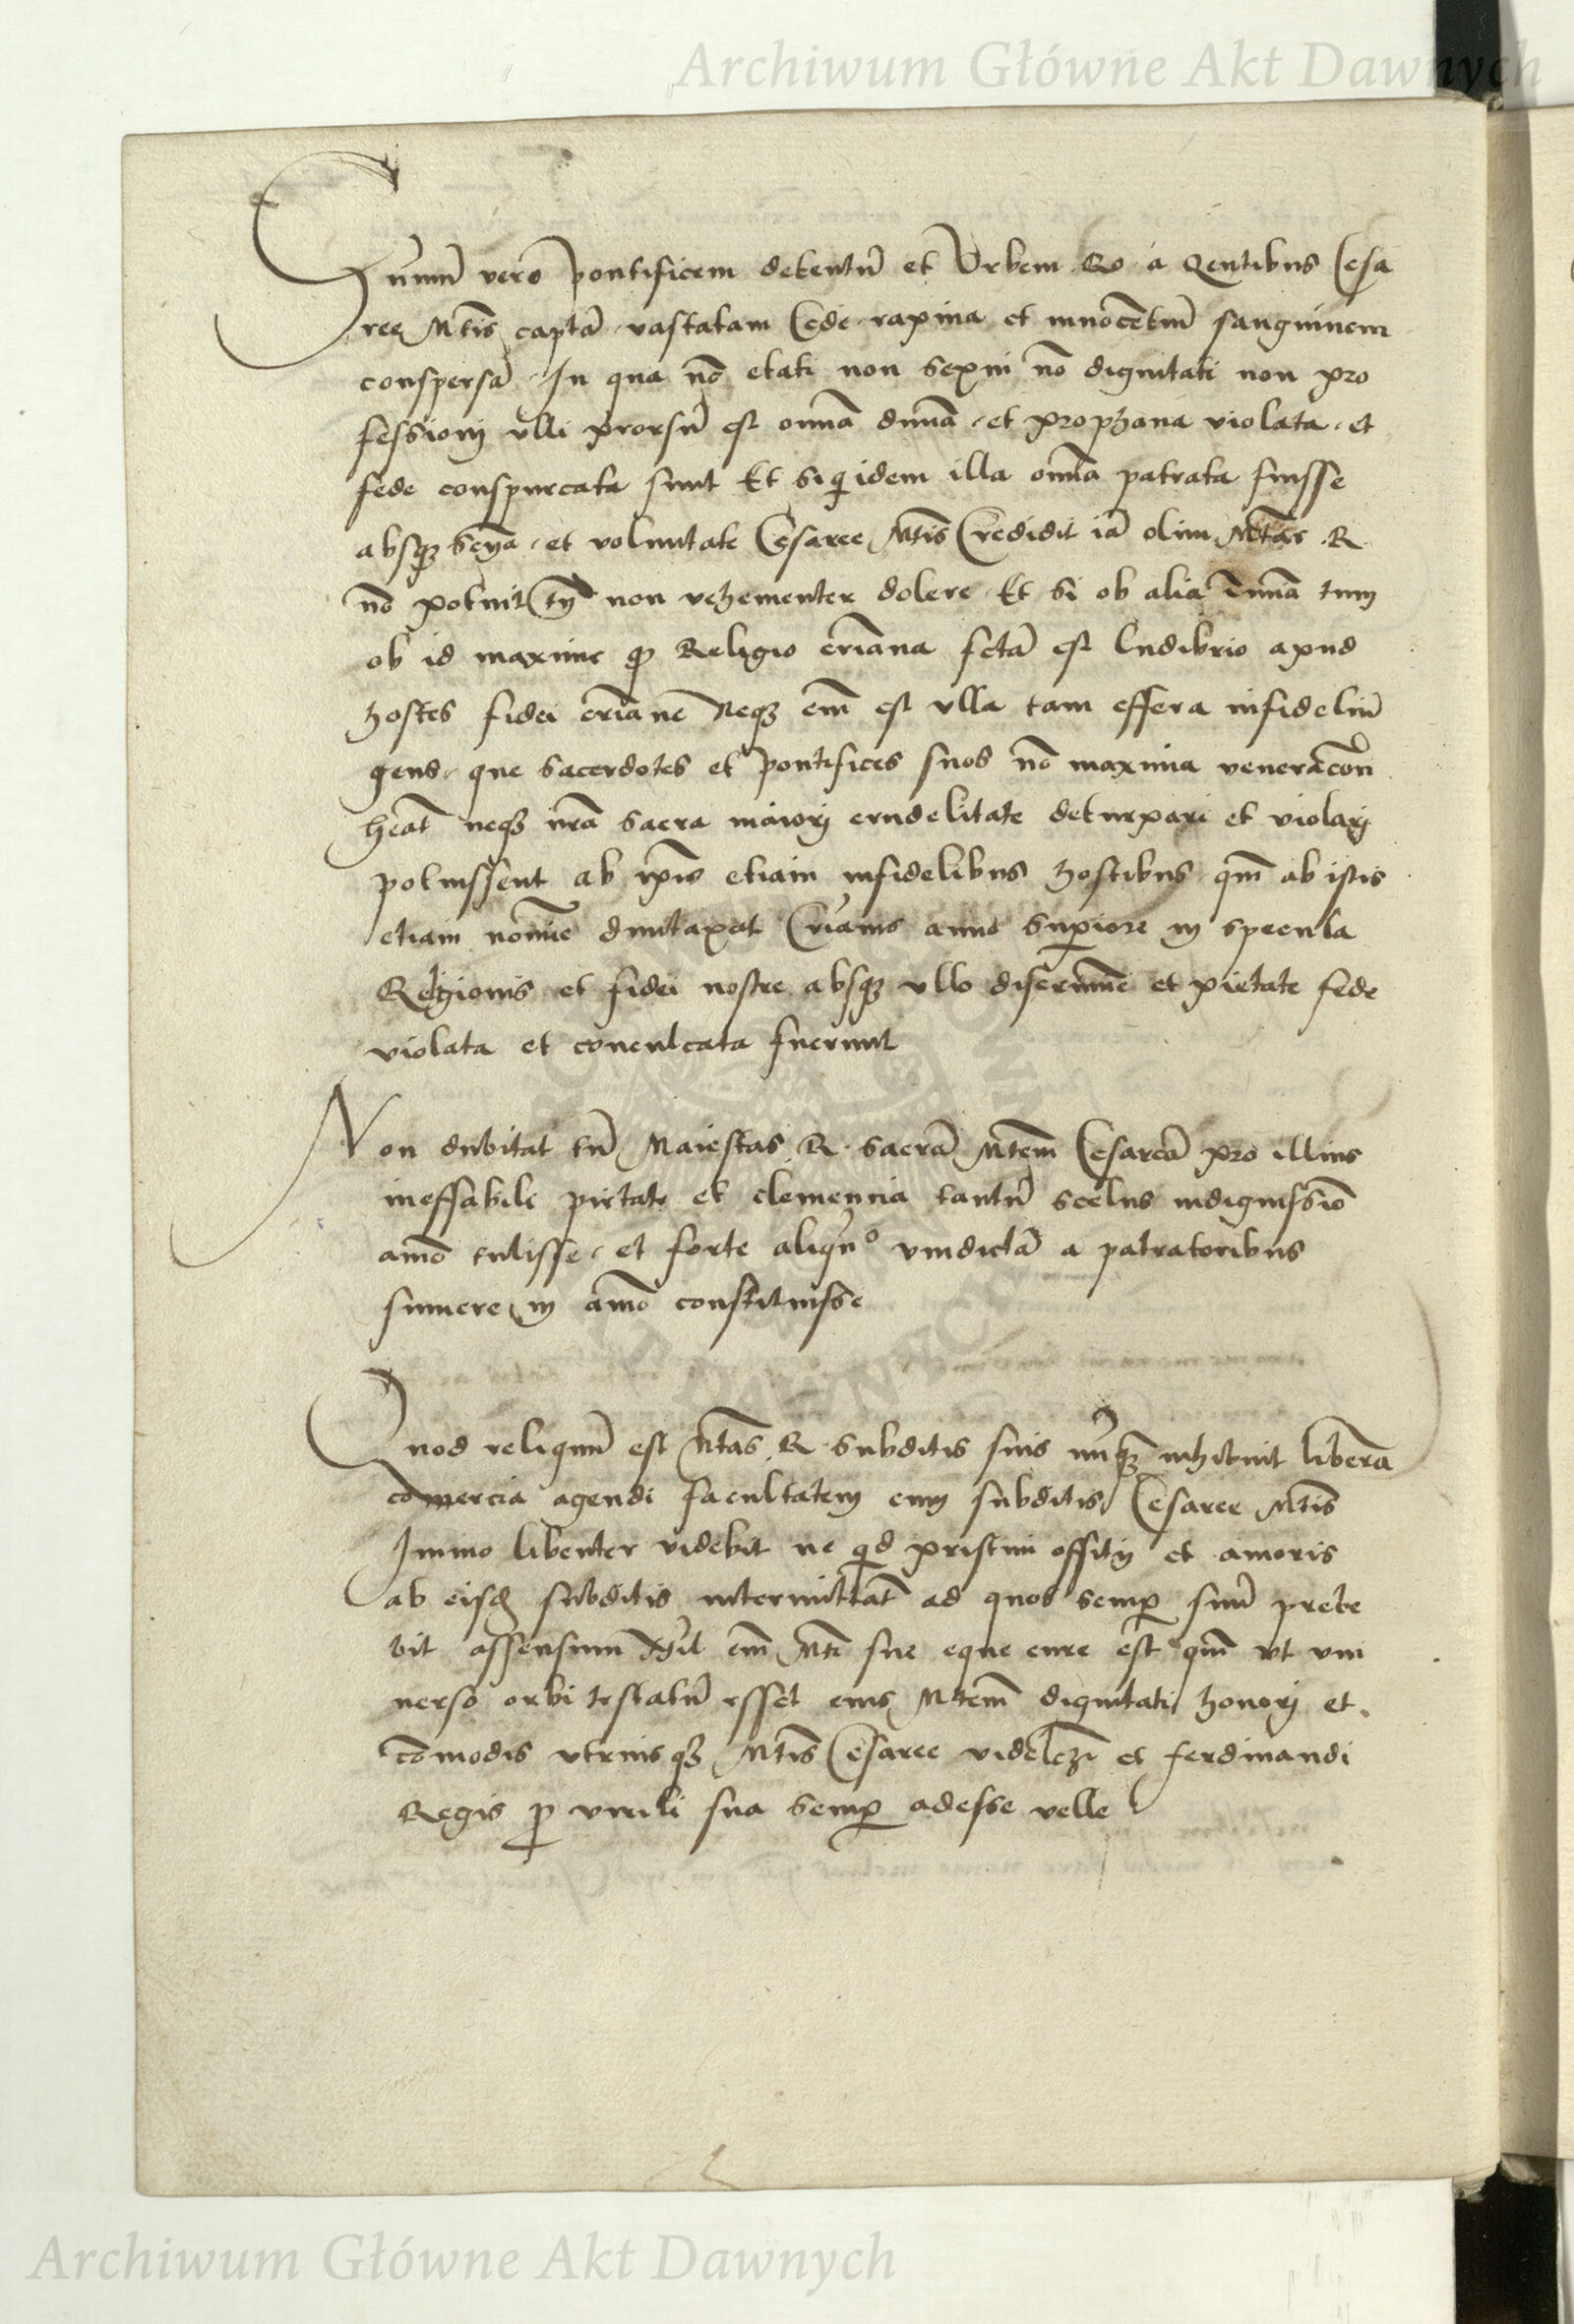 Archiwum Główne Akt Dawnych
Summū vero pontificem detentū et Vrbem Ro a gentibus Cesa
ree Mtis captā vastatam Cede rapina et innocētiū sanguinem
conspersā In qua nō etati non sexui nō dignitati non pro
fessionj vlli prorsū est omīa diuīa et prophana violata et
fede conspurcata sunt Et siqidem illa omīa patrata fuisse
absqȝ sciēa et voluntate Cesaree Mtis Credidit iā olim Mtas R
nō potuit tn̄ non vehementer dolere Et si ob alia omīa tum
ob id maxime qp Religio criana fcta est ludibrio apud
hostes fidei criane Neqȝ em̄ est vlla tam effera infideliū
gens que sacerdotes et pontifices suos nō maxima veneracōn
heat neqȝ nr̄a sacra maiorj crudelitate deturpari et violarj
potuissent ab ipis etiam infidelibus hostibus qm̄ ab istis
etiam nomīe duntaxat Crianis anno supiore in specula
Religionis et fidei nostre absqȝ vllo discrimīe et pietate fede
violata et conculcata fuerunt
Non dubitat tn̄ Maiestas R sacrā Mtem̄ Cesareā pro illius
ineffabili pietate et clemencia tantū scelus indignissīo
aīmo tulisse et forte aliqn̄o vindictā a patratoribus
sumere in aīmo constituisse
Quod reliquū est Mtas R subditis suis nūqȝ inhibuit liberā
cōmercia agendi facultatem cum subditis Cesaree Mtis
Immo libenter videbit ne qid pristini offitij et amoris
ab eisd subditis intermittat ad quod semp suū prebe
bit assensum Nil em̄ Mti sue eque cure est qm̄ vt vni
uerso orbi testatū esset eius Mtem̄ dignitati honorj et
cōmodis vtriusqȝ Mtis Cesaree videlezȝ et ferdinandi
Regis p virili sua semp adesse velle
Archiwum Główne Akt Dawnych